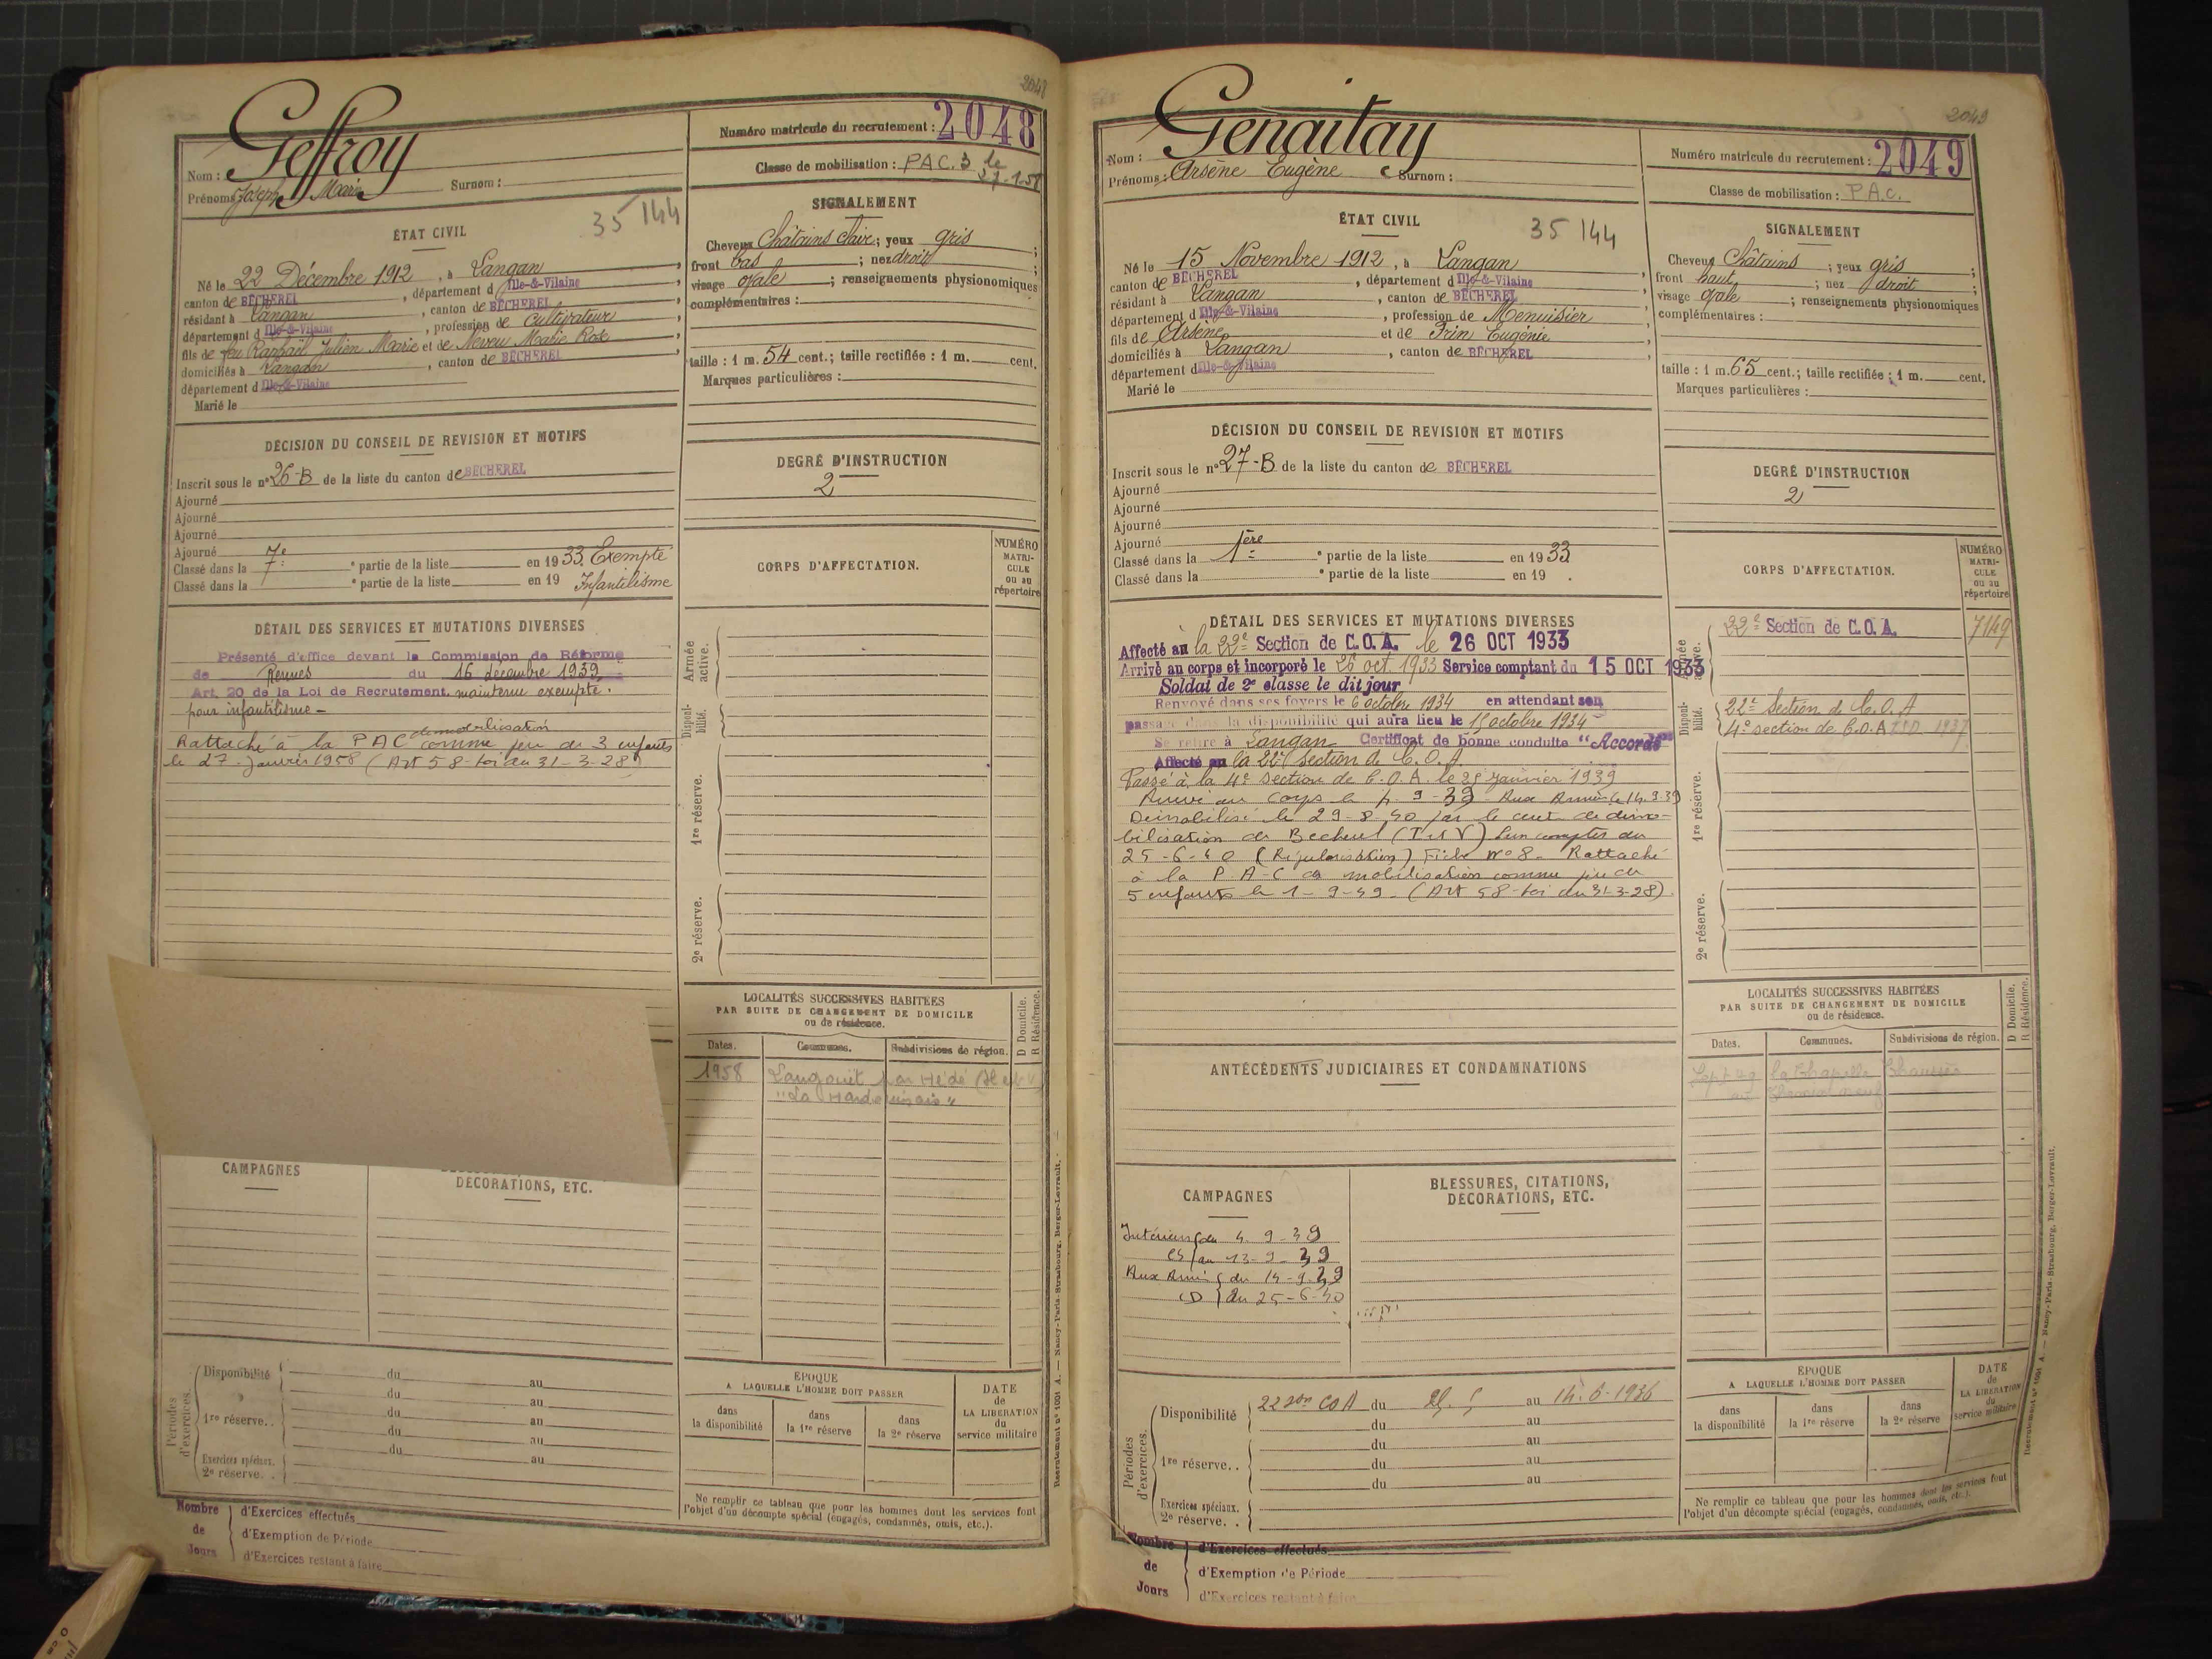 2048
Geffroy
Nom :
Prénoms : Joseph Marie Surnom :
35 144
Numéro matricule du recrutement : 2048
Classe de mobilisation : PAC. 3 le
27-1-58
ÉTAT CIVIL
Né le 22 Décembre 1912, à Langan
canton de BÉCHEREL, département d Ille-&-Vilaine
résidant à Langan, canton de BÉCHEREL
département d Ille-&-Vilaine, profession de Cultivateur
fils de feu Raphaël Julien Marie et de Neveu Marie Rose
domiciliés à Langan, canton de BÉCHEREL
département d Ille-&-Vilaine
Marié le
SIGNALEMENT
Cheveux Châtains clairs ; yeux gris ;
front bas ; nez droit ;
visage ovale ; renseignements physionomiques
complémentaires :
taille : 1 m. 54 cent. ; taille rectifiée : 1 m. cent.
Marques particulières :
DÉCISION DU CONSEIL DE REVISION ET MOTIFS
Inscrit sous le n° 26-B de la liste du canton de BÉCHEREL
Ajourné
Ajourné
Ajourné
Ajourné
Classé dans la 7e ° partie de la liste en 1933. Exempté
Classé dans la ° partie de la liste en 19 Infantilisme
DEGRÉ D'INSTRUCTION
2
CORPS D'AFFECTATION.
NUMÉRO
MATRI-
CULE
ou au
répertoire
DÉTAIL DES SERVICES ET MUTATIONS DIVERSES
Présenté d'office devant la Commission de Réforme
de Rennes du 16 décembre 1939
Art. 20 de la Loi de Recrutement. maintenu exempté.
pour infantilisme -
démobilisation
Rattaché à la PAC comme père de 3 enfants
le 27 janvier 1958 (Art 58 - loi du 31-3-28)
Armée
active.
Disponi-
bilité.
1re réserve.
2e réserve.
LOCALITÉS SUCCESSIVES HABITÉES
PAR SUITE DE CHANGEMENT DE DOMICILE
ou de résidence.
D Domicile.
R Résidence.
Dates. Communes. Subdivisions de région.
1958 Langouët par Hédé (Il et V)
CAMPAGNES
DÉCORATIONS, ETC.
Périodes
d'exercices.
Disponibilité du au
du au
1re réserve. . du au
du au
Exercices spéciaux. du au
2e réserve. .
ÉPOQUE
A LAQUELLE L'HOMME DOIT PASSER
dans
la disponibilité
dans
la 1re réserve
dans
la 2e réserve
DATE
de
LA LIBÉRATION
du
service militaire
Ne remplir ce tableau que pour les hommes dont les services font
l'objet d'un décompte spécial (engagés, condamnés, omis, etc.).
Nombre
de
Jours
d'Exercices effectués
d'Exemption de Période
d'Exercices restant à faire
Recrutement n° 1001 A. — Nancy-Paris-Strasbourg, Berger-Levrault.
2049
Genaitay
Nom :
Prénoms : Arsène Eugène Surnom :
Numéro matricule du recrutement : 2049
Classe de mobilisation : P.A.C.
ÉTAT CIVIL
35 144
Né le 15 Novembre 1912, à Langan
canton de BÉCHEREL, département d Ille-&-Vilaine
résidant à Langan, canton de BÉCHEREL
département d Ille-&-Vilaine, profession de Menuisier
fils de Arsène et de Frin Eugénie
domiciliés à Langan, canton de BÉCHEREL
département d Ille-&-Vilaine
Marié le
SIGNALEMENT
Cheveux Châtains ; yeux gris ;
front haut ; nez droit ;
visage ovale ; renseignements physionomiques
complémentaires :
taille : 1 m. 65 cent. ; taille rectifiée : 1 m. cent.
Marques particulières :
DÉCISION DU CONSEIL DE REVISION ET MOTIFS
Inscrit sous le n° 27-B de la liste du canton de BÉCHEREL
Ajourné
Ajourné
Ajourné
Ajourné
Classé dans la 1ère ° partie de la liste en 1933
Classé dans la ° partie de la liste en 19 .
DEGRÉ D'INSTRUCTION
2
CORPS D'AFFECTATION.
NUMÉRO
MATRI-
CULE
ou au
répertoire
22e Section de C.O.A. 7149
22e Section de C.O.A
4e section de C.O.A 1937
DÉTAIL DES SERVICES ET MUTATIONS DIVERSES
Affecté au la 22e Section de C.O.A. le 26 OCT 1933
Arrivé au corps et incorporé le 26 oct. 1933 Service comptant du 15 OCT 1933
Soldat de 2e classe le dit jour
Renvoyé dans ses foyers le 6 octobre 1934 en attendant son
passage dans la disponibilité qui aura lieu le 15 octobre 1934
Se retire à Langan Certificat de bonne conduite "Accordé"
Affecté au la 22e Section de C.O.A.
Passé à la 4e section de C.O.A. le 25 janvier 1939
Arrivé au corps le 4-9-39 Aux Armées le 14.9.39
Démobilisé le 29-8-40 par le centre de démo-
bilisation de Becherel (I et V)
25-6-40 (Régularisation) Fiche N° 8. Rattaché
à la P.A.C de mobilisation comme père de
5 enfants le 1-9-49. (Art 58-loi du 31-3-28)
Armée
active.
Disponi-
bilité.
1re réserve.
2e réserve.
ANTÉCÉDENTS JUDICIAIRES ET CONDAMNATIONS
LOCALITÉS SUCCESSIVES HABITÉES
PAR SUITE DE CHANGEMENT DE DOMICILE
ou de résidence.
D Domicile.
R Résidence.
Dates. Communes. Subdivisions de région.
Sept 49 La Chapelle Chaussée
CAMPAGNES
BLESSURES, CITATIONS,
DÉCORATIONS, ETC.
Intérieur du 4-9-39
au 13-9-39
Aux Armées du 14-9-39
au 25-6-40
Périodes
d'exercices.
Disponibilité 22 son COA du au 14-6-1936
du au
1re réserve. . du au
du au
du au
Exercices spéciaux.
2e réserve. .
ÉPOQUE
A LAQUELLE L'HOMME DOIT PASSER
dans
la disponibilité
dans
la 1re réserve
dans
la 2e réserve
DATE
de
LA LIBÉRATION
du
service militaire
Ne remplir ce tableau que pour les hommes dont les services font
l'objet d'un décompte spécial (engagés, condamnés, omis, etc.).
Nombre
de
Jours
d'Exercices effectués
d'Exemption de Période
d'Exercices restant à faire
Recrutement n° 1001 A. — Nancy-Paris-Strasbourg, Berger-Levrault.